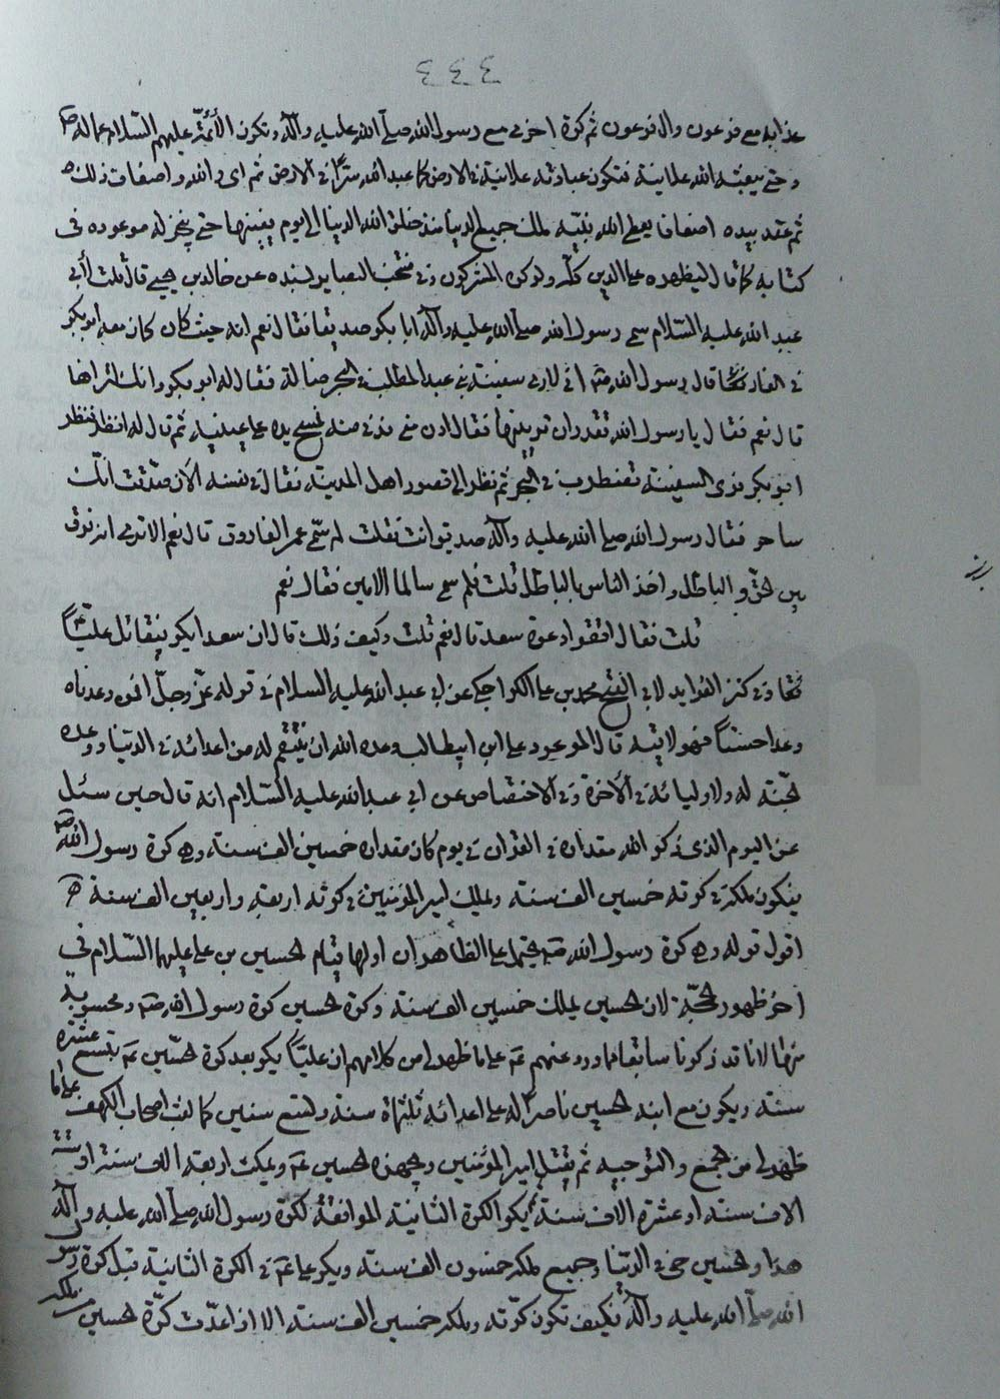 ٤٤٤
عذابه مع فرعون وال فرعون ثم كرة اخرى مع رسول الله صلى الله عليه وآله وتكون الأئمة عليهم السلام عماله
وحتى يبعثه الله علانية فتكون عبادته علانية في الارض كما عبد الله سرا في الارض ثم اى والله واضعاف ذلك
ثم عقد بيده اضعافا يعطى الله نبيه ملك جميع الدنيا منذ خلق الله الدنيا الى يوم يفنيها حتى ينجز له موعوده في
كتابه كما قال ليظهره على الدين كله ولو كره المشركون وفي منتخب البصاير بسنده عن خالد بن يحيى قال قلت لأبي
عبد الله عليه السلام سمى رسول الله صلى الله عليه وآله ابا بكر صديقا فقال نعم انه حيث كان معه ابو بكر
في الغار قال رسول الله اني لارى سفينة بني عبد المطلب في البحر ضالة فقال له ابو بكر وانك لتراها
قال نعم فقال يا رسول الله تقدر ان ترينيها فقال ادن مني فدنى منه فمسح يده على عينيه ثم قال له انظر فنظر
ابو بكر فرى السفينة تضطرب في البحر ثم نظر الى قصور اهل المدينة فقال في نفسه الآن صدقت انك
ساحر فقال رسول الله صلى الله عليه وآله صديق انت فقلت لم سمى عمر الفاروق قال نعم الا ترى انه فرق
بين الحق والباطل واخذ الناس بالباطل قلت فلم سمى سالما الامين فقال نعم
قلت فقال اتقوا دعوة سعد قال نعم قلت وكيف ذلك قال ان سعدا يكر فيقاتل عليا
وفي كنز الفوايد لابي الفتح محمد بن على الكراجكى عن ابي عبد الله عليه السلام في قوله عز وجل افمن وعدناه
وعدا حسنا فهو لاقيه قال الموعود على ابن ابيطالب وعده الله ان ينتقم له من اعدائه في الدنيا ووعده
الجنة له ولاوليائه في الآخرة وفي الاختصاص عن ابي عبد الله عليه السلام انه قال حين سئل
عن اليوم الذى ذكر الله مقداره في القران في يوم كان مقداره خمسين الف سنة وهي كرة رسول الله
فيكون ملكه في كرته خمسين الف سنة ويملك امير المؤمنين في كرته اربعة واربعين الف سنة
اقول قوله وهي كرة رسول الله يحتمل على الظاهر ان اولها قيام الحسين بن على عليهما السلام في
آخر ظهور الحجة لان الحسين يملك خمسين الف سنة وكرة الحسين كرة رسول الله ومحسوبة
منها لانا قد ذكرنا سابقا مما ورد عنهم على ما ظهر لي من كلامهم ان عليا يكر بعد كرة الحسين بتسع عشرة
سنة ويكون مع ابنه الحسين ناصرا له على اعدائه ثلثمائة سنة وتسع سنين كما لبث اصحاب الكهف على ما
ظهر لي من الجمع والتوجيه ثم يقتل امير المؤمنين ويجهزه الحسين ويمكث اربعة الاف سنة او ستة
الاف سنة او عشرة الاف سنة ثم يكر الكرة الثانية الموافقة لكرة رسول الله صلى الله عليه وآله
هذا والحسين حي في الدنيا وجميع ملكه خمسون الف سنة ويكر على في الكرة الثانية قبل كرة رسول
الله صلى الله عليه وآله فكيف تكون كرته وملكه خمسين الف سنة الا اذا عدت كرة الحسين